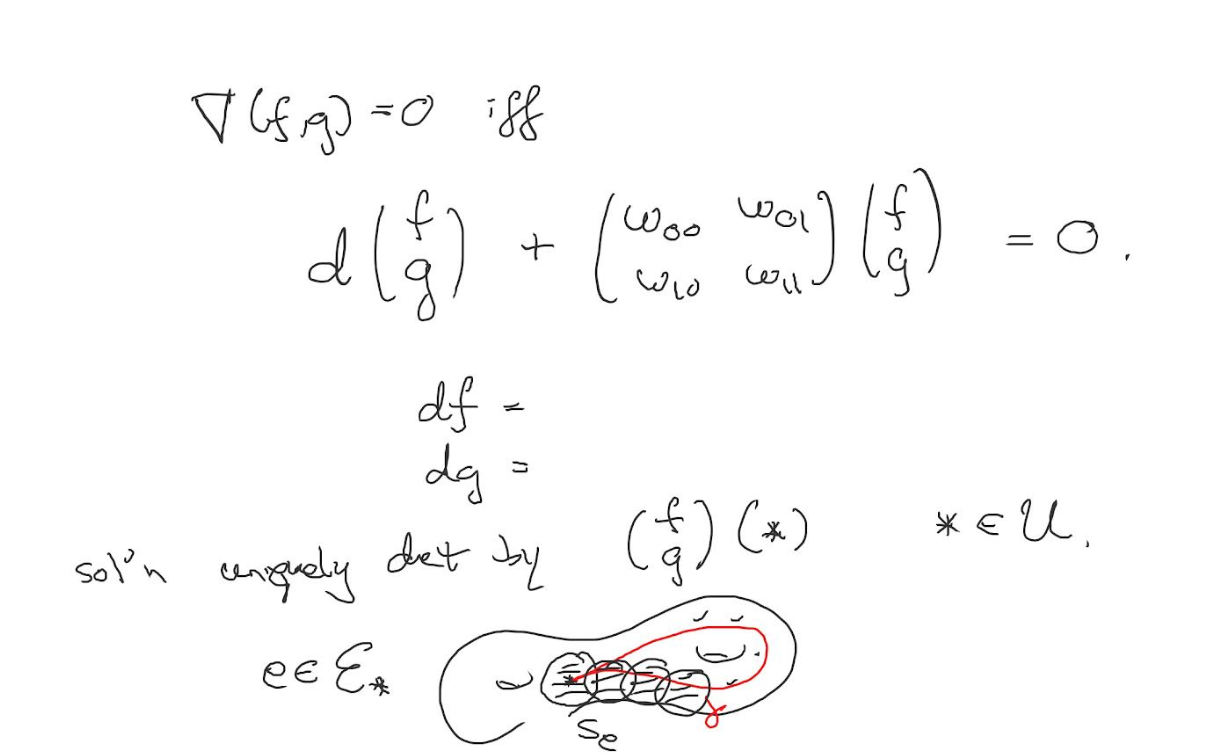 ∇(f,g) = 0 iff
d(f g) + (ω₀₀ ω₀₁ ω₁₀ ω₁₁)(f g) = 0.
df =
dg =
sol'n uniquely det by (f g)(*) * ∈ U.
e ∈ ℰ_*
*
γ
s_e